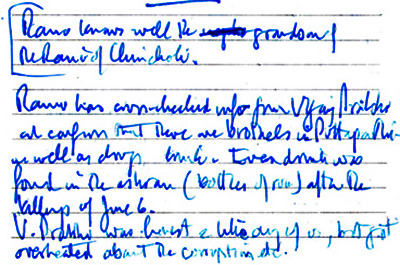 Ramo knows well the grandson of
the Rani of Chincholi.
Ramo has cross-checked infos from Vijay Prabhu
and confirms that there are brothels in Puttaparthi
as well as drugs, drink. Even drink was
found in the ashram (bottles of rum) after the
killings of June 6.
V. Prabhu was honest a like any of us, but got
overheated about the corruption etc.